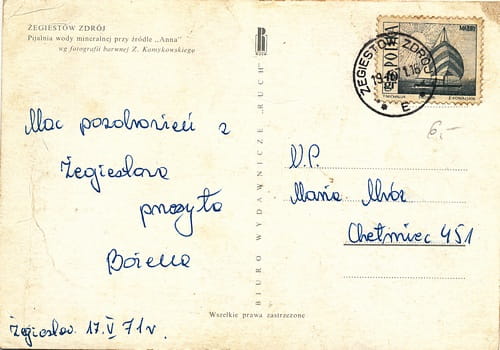 ŻEGIESTÓW ZDRÓJ
Pijalnia wody mineralnej przy źródle „Anna"
wg fotografii barwnej Z. Kamykowskiego
RUCH
BIURO WYDAWNICZE „RUCH"
Moc pozdrowień z
Żegiestowa
przesyła
Bożena
Żegiestów. 17.V 71 r.
ŻEGIESTÓW ZDRÓJ
E
POLSKA
W.P.
Maria Mróz
Chełmiec 451
6.-
Wszelkie prawa zastrzeżone